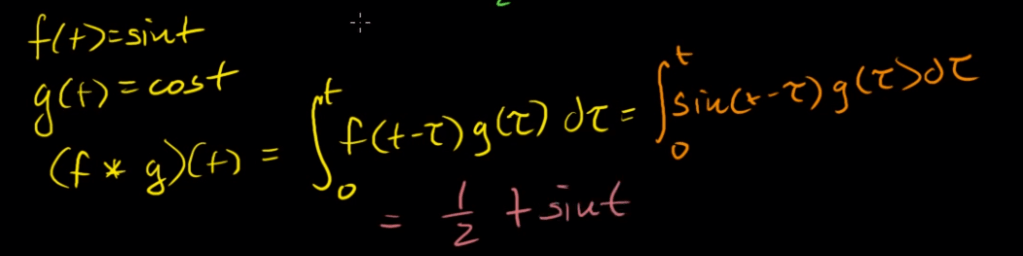 f(t)=sint
g(t)=cost
(f * g)(t) = ∫₀ᵗ f(t-τ) g(τ) dτ = ∫₀ᵗ sin(t-τ) g(τ) dτ
= 1/2 t sint